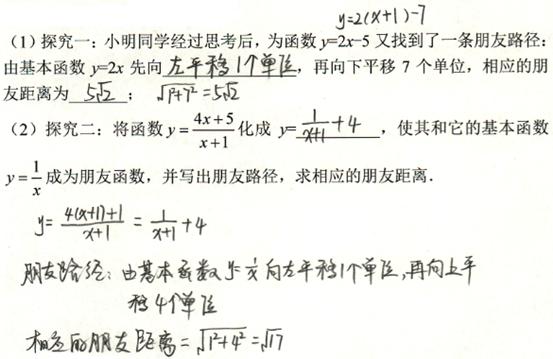 y=2(x+1)-7
（1）探究一：小明同学经过思考后，为函数 y=2x-5 又找到了一条朋友路径：
由基本函数 y=2x 先向 左平移1个单位，再向下平移 7 个单位，相应的朋
友距离为 5√2 ； √(1²+7²) =5√2
（2）探究二：将函数 y=(4x+5)/(x+1) 化成 y= 1/(x+1) +4 ，使其和它的基本函数
y=1/x 成为朋友函数，并写出朋友路径，求相应的朋友距离．
y= (4(x+1)+1)/(x+1) = 1/(x+1) +4
朋友路径：由基本函数 y=1/x 向左平移1个单位，再向上平
移4个单位
相应的朋友距离=√(1²+4²) =√17